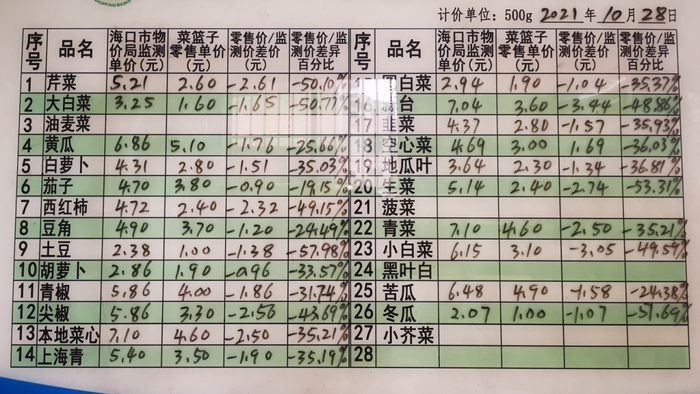 SHOPPING BASKET
计价单位：500g 2021年10月28日
序号 品名 海口市物价局监测单价(元) 菜篮子零售单价(元) 零售价/监测价差价(元) 零售价/监测价差异百分比 序号 品名 海口市物价局监测单价(元) 菜篮子零售单价(元) 零售价/监测价差价(元) 零售价/监测价差异百分比
1 芹菜 5.21 2.60 -2.61 -50.10% 圆白菜 2.94 1.90 -1.04 -35.37%
2 大白菜 3.25 1.60 -1.65 -50.77% 16 蒜台 7.04 3.60 -3.44 -48.86%
3 油麦菜 17 韭菜 4.37 2.80 -1.57 -35.93%
4 黄瓜 6.86 5.10 -1.76 -25.66% 18 空心菜 4.69 3.00 1.69 -36.03%
5 白萝卜 4.31 2.80 -1.51 -35.03% 19 地瓜叶 3.64 2.30 -1.34 -36.81%
6 茄子 4.70 3.80 -0.90 -19.15% 20 生菜 5.14 2.40 -2.74 -53.31%
7 西红柿 4.72 2.40 -2.32 -49.15% 21 菠菜
8 豆角 4.90 3.70 -1.20 -24.49% 22 青菜 7.10 4.60 -2.50 -35.21%
9 土豆 2.38 1.00 -1.38 -57.98% 23 小白菜 6.15 3.10 -3.05 -49.59%
10 胡萝卜 2.86 1.90 -0.96 -33.57% 24 黑叶白
11 青椒 5.86 4.00 -1.86 -31.74% 25 苦瓜 6.48 4.90 -1.58 -24.38%
12 尖椒 5.86 3.30 -2.56 -43.69% 26 冬瓜 2.07 1.00 -1.07 -51.69%
13 本地菜心 7.10 4.60 -2.50 -35.21% 27 小芥菜
14 上海青 5.40 3.50 -1.90 -35.19% 28